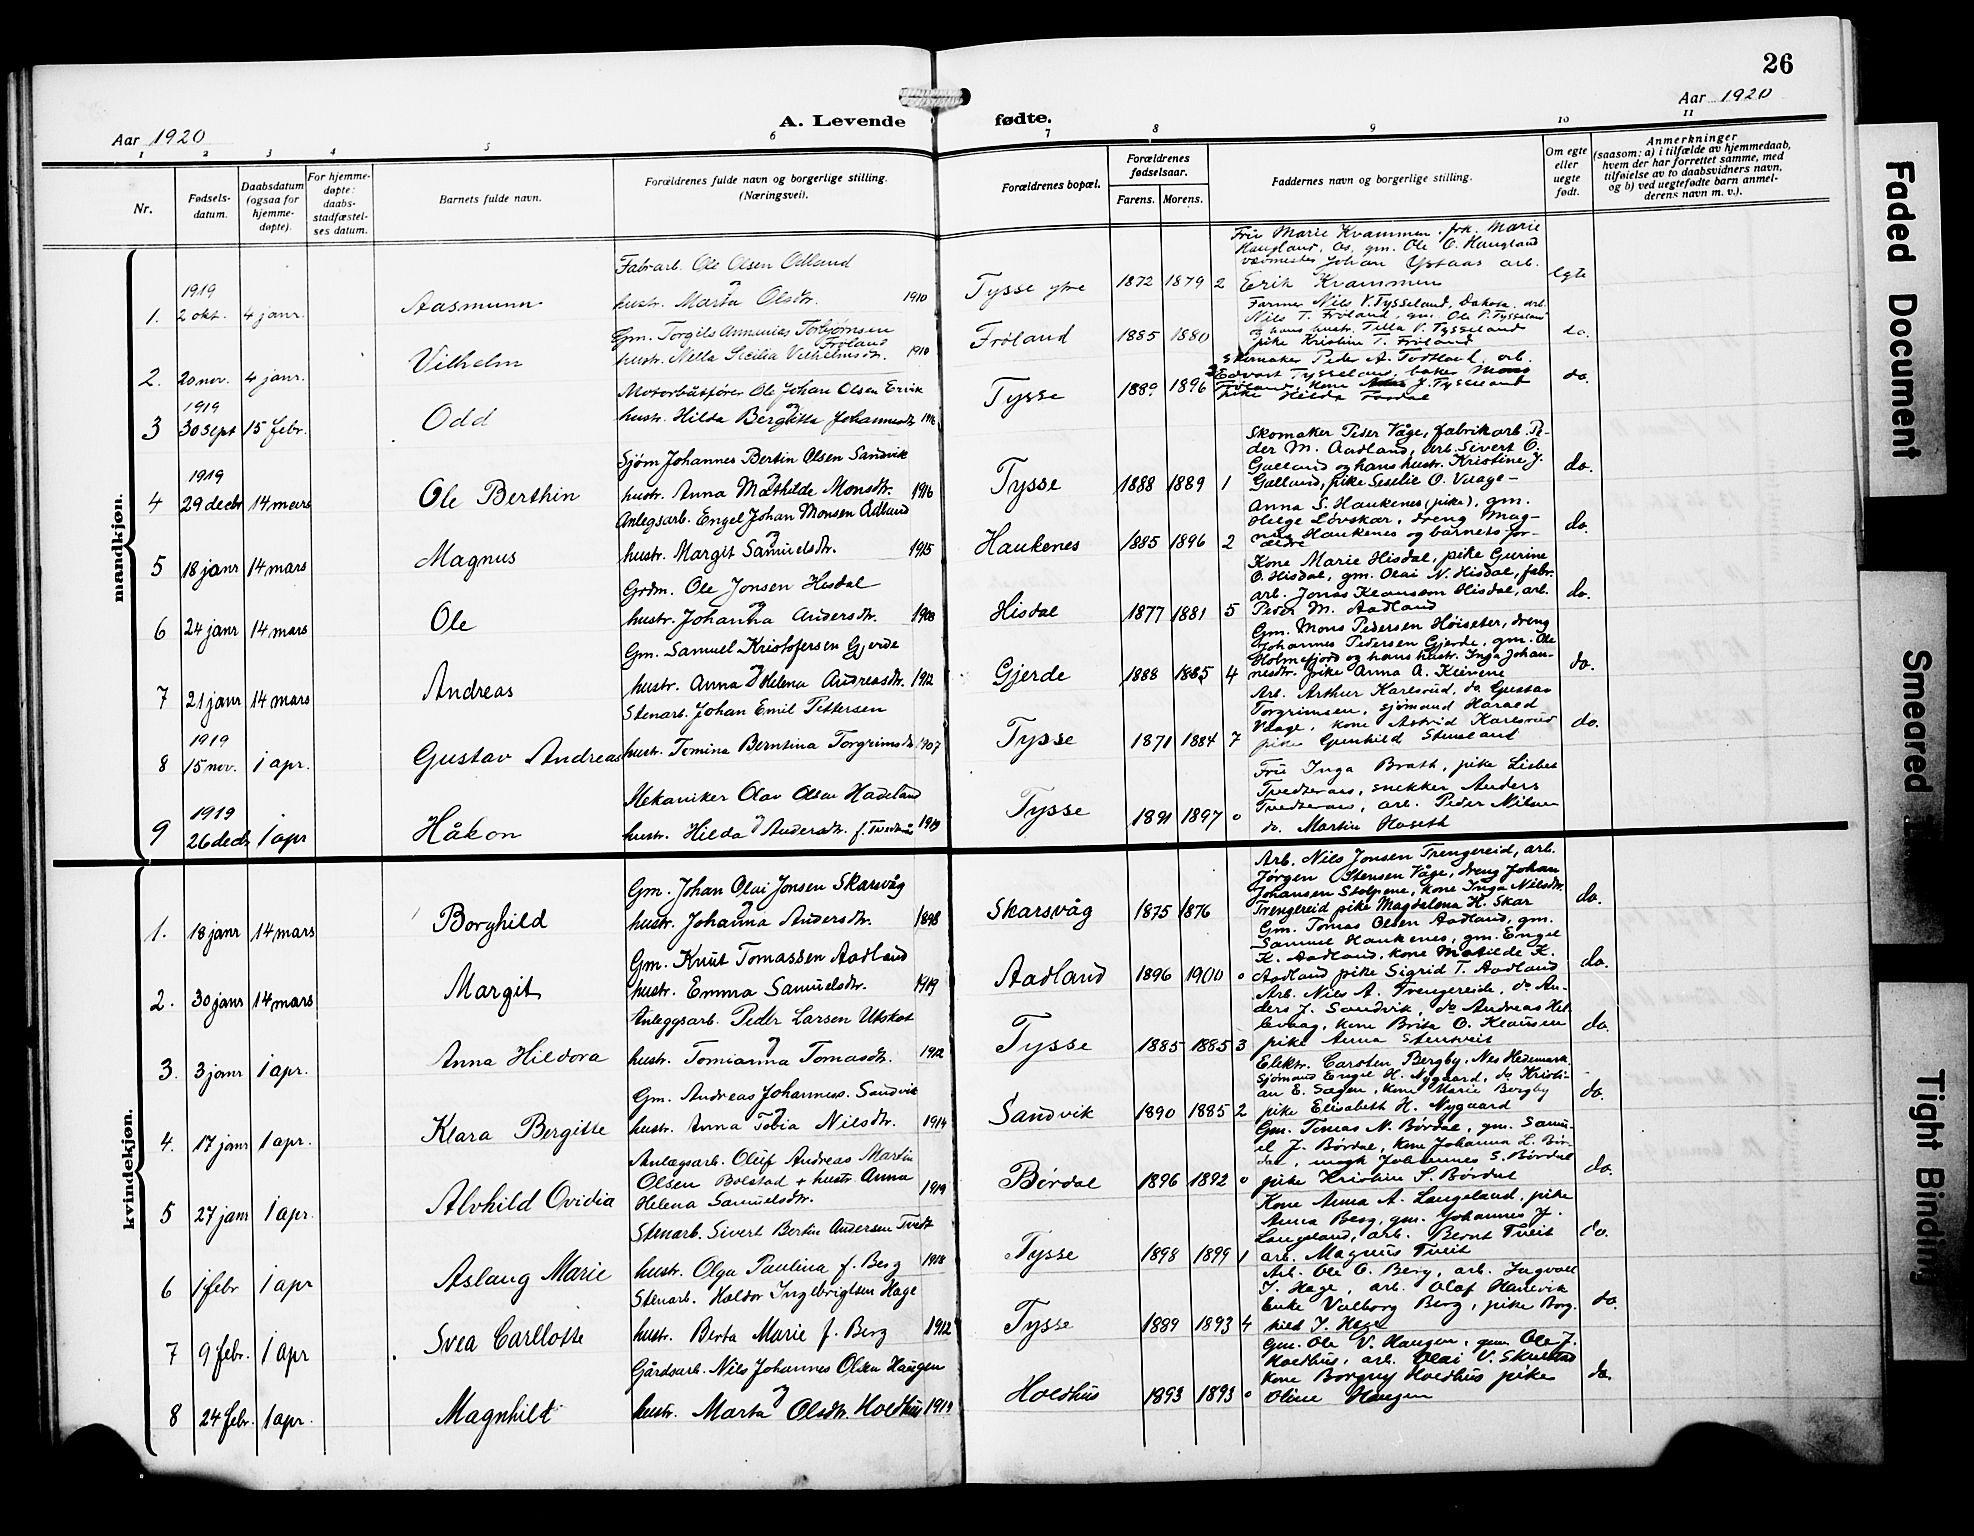 26
Aar 1920
A. Levende fødte.
Aar 1920
1 2 3 4 5 6 7 8 9 10 11
Nr.
Fødsels-
datum.
Daabsdatum
(ogsaa for
hjemme-
døpte).
For hjemme-
døpte:
daabs-
stadfæstel-
ses datum.
Barnets fulde navn.
Forældrenes fulde navn og borgerlige stilling.
(Næringsvei).
Forældrenes bopæl.
Forældrenes
fødselsaar.
Farens. Morens.
Faddernes navn og borgerlige stilling.
Om egte
eller
uegte
født.
Anmerkninger
(saasom: a) i tilfælde av hjemmedaab,
hvem der har forrettet samme, med
tilføielse av to daabsvidners navn,
og b) ved uegtefødte barn anmel-
derens navn m. v.).
mandkjøn.
1. 1919 2 okt. 4 janr. Aasmunn
Fabrarb. Ole Olsen Odland
og
hustr. Marta Olsdtr. 1910
Tysse ytre 1872 1879 2
Fru Marie Kvammen, frk. Marie
Haugland, Os, gm. Ole O. Haugland
Johan arb.
Erik Kvammen
egte
2. 20 nov. 4 janr. Vilhelm
Gm. Torgils Annanias Torbjørnsen
Frøland
hustr. Nella Sicilia Vilhelmsdtr. 1910
Frøland 1885 1880
Farmer Nils V. Tysseland, Dakota, arb.
Nils T. Frøland, gm. Ole V. Tysseland
og hans hustr. Tilla V. Tysseland
pike Kristine T. Frøland
do.
3 1919 30 sept 15 febr. Odd
Motorbåtfører Ole Johan Olsen Ervik
og
hustr. Hilda Bergitte Johannesdtr 1916
Tysse 1889 1896 2
Skomaker Peder A. arb.
Edvart Tysseland, baker Mons
Frøland, kone J. Tysseland
pike Hilda
do.
4 1919 29 decbr 14 mars Ole Berthin
Sjøm Johannes Bertin Olsen Sandvik
og
hustr. Anna Mathilde Monsdtr. 1916
Tysse 1888 1889 1
Skomaker Peder Våge, fabrikarb. Pe-
der M. Aadland, arb. Sivert O.
Galland og hans hustr. Kristine J.
Galland, pike Seselie O. Vaage-
do.
5 18 janr 14 mars Magnus
Anlegsarb. Engel Johan Monsen Ådland
og
hustr. Margit Samuelsdtr. 1915
Haukenes 1885 1896 2
Anna S. Haukenes (pike), gm.
Helge Løvskar, dreng Mag-
nus Haukenes og barnets for-
ældre
do.
6 24 janr 14 mars Ole
Grdm. Ole Jonsen Hisdal
og
hustr. Johanna Andersdtr. 1908
Hisdal 1877 1881 5
Kone Marie Hisdal, pike Gurine
O. Hisdal, gm. Olai N. Hisdal, fabr.
arb. Jonas Klausson Hisdal, arb.
Peder M. Aadland
do.
7 21 janr 14 mars Andreas
Gm. Samuel Kristofersen Gjerde
og
hustr. Anna Helena Andreasdtr. 1912
Gjerde 1888 1885 4
Gm. Mons Pedersen Høiseter, dreng
Johannes Pedersen Gjerde, gm. Ole
Holmefjord og hans hustr. Inga Johan-
nesdtr. pike Anna A. Kleivene
do.
8 1919 15 nov. 1 apr. Gustav Andreas
Stenarb. Johan Emil Pettersen
hustr. Tomina Berntina Torgrimsdtr. 1907
Tysse 1871 1884 7
Arb. Arthur Karlsrud, do Gustav
Torgrimsen, sjømand Harald
Vaage, kone Astrid Karlsrud
pike Gunhild Stenslaand
do.
9 1919 26 decbr 1 apr Håkon
Mekaniker Olav Olsen Hadeland
og
hustr. Hilda Andersdtr. f. 1919
Tysse 1891 1897 0
Fru Inga Brath, pike Lisbet
snekker Anders
arb. Peder Nilsen
do. Martin Haseth
kvindekjøn.
1. 18 janr 14 mars Borghild
Gm. Johan Olai Jonsen Skarsvåg
og
hustr. Johanna Andersdtr. 1898
Skarsvåg 1875 1876
Arb. Nils Jonsen Trengereid, arb.
Jørgen Stensen Våge, dreng Johan
Johansen Stolpene, kone Inga Nilsdtr.
Trengereid pike Magdalena H. Skar
do.
2. 30 janr 14 mars Margit
Gm. Knut Tomassen Aadland
hustr. Emma Samuelsdtr. 1919
Aadland 1896 1900 0
Gm. Tomas Olsen Aadland, gm.
Samuel Haukenes, gm. Engel
K. Aadland, kone Matilde K.
Aadland pike Sigrid T. Aadland
do.
3. 3 janr 1 apr. Anna Hildora
Anleggsarb. Peder Larsen Utskot
og
hustr. Tomianna Tomasdtr. 1912
Tysse 1885 1885 3
Arb. Nils A. Trengereide, do An-
ders J. Sandvik, do Andreas Hel-
levaag, kone Brita O. Klausen
pike Anna Stensveit
do.
4. 17 janr 1 apr. Klara Bergitte
Gm. Andreas Johanness. Sandvik
og
hustr. Anna Tobia Nilsdtr. 1914
Sandvik 1890 1885 2
Elektr. Carsten Bergby, Nes Hedemark
sjømand Engel H. Nygaard, do Kristi-
an E. Sagen, kone Marie Bergby
pike Elisabeth H. Nygaard
do.
5 27 janr 1 apr. Alvhild Ovidia
Anlægsarb. Oluf Andreas Martin
Olsen Bolstad + hustr. Anna
Helena Samuelsdtr. 1919
Børdal 1896 1892 0
Gm. Tomas N. Børdal, gm. Samu-
el J. Børdal, kone Johanna L. Bør-
dal, ungk Johannes S. Børdal
pike Kristine S. Børdal
do.
6 1 febr 1 apr Aslaug Marie
Stenarb. Sivert Bertin Andersen Tvedt
hustr. Olga Paulina f. Berg 1918
Tysse 1898 1899 1
Kone Anna A. Langeland, pike
Anna Berg, gm. Johannes J.
Langeland, arb. Bernt Tveit
arb. Magnus Tveit
do.
7 9 febr. 1 apr Svea Carllotte
Stenarb. Haldor Ingebrigtsen Hage
hustr. Berta Marie f. Berg 1912
Tysse 1889 1893 4
Arb. Ole O. Berg, arb. Ingvald
I. Hage, arb. Olaf Hanevik
Enke Valborg Berg, pike Borg-
hild I. Hage
do.
8 24 febr. 1 apr. Magnhild
Gårdsarb. Nils Johannes Olsen Haugen
og
hustr. Marta Olsdtr. Holdhus 1919
Holdhus 1893 1893 0
Gm. Ole V. Haugen, gm. Ole J.
Holdhus, arb. Olai V.
Kone Borgny Holdhus pike
Oline Haugen
do.
Faded Document
Smeared
Tight Binding